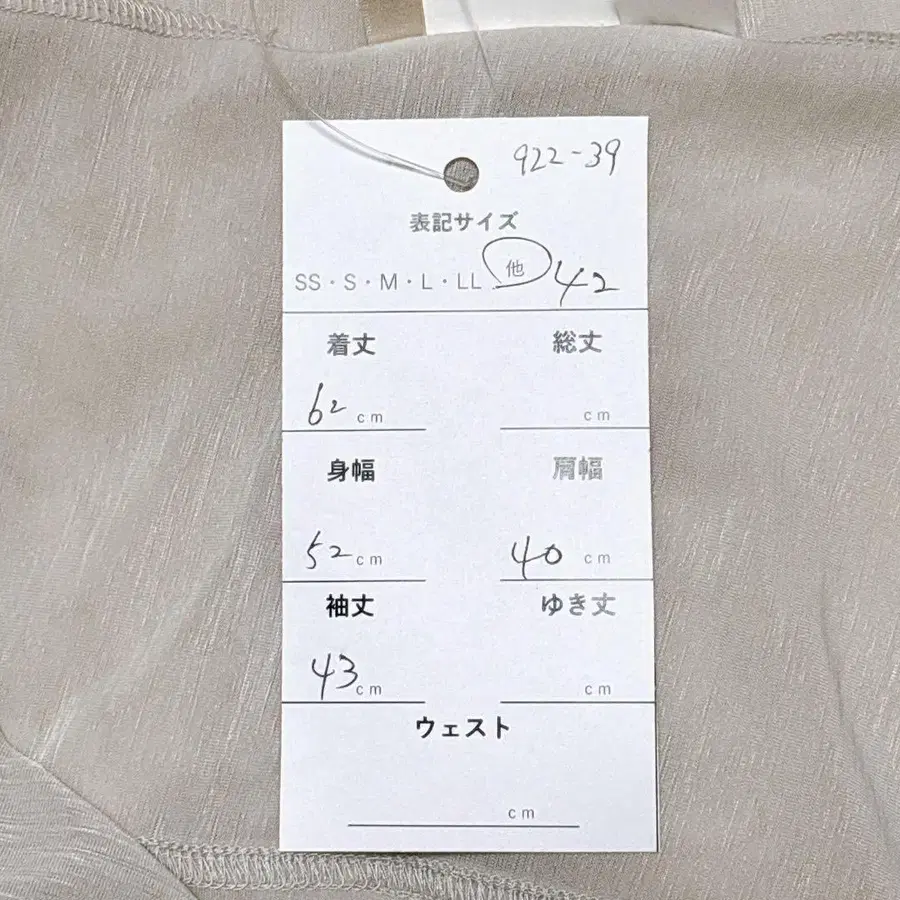 922-39
表記サイズ
SS・S・M・L・LL 他 42
着丈 総丈
62 cm cm
身幅 肩幅
52 cm 40 cm
袖丈 ゆき丈
43 cm cm
ウェスト
cm